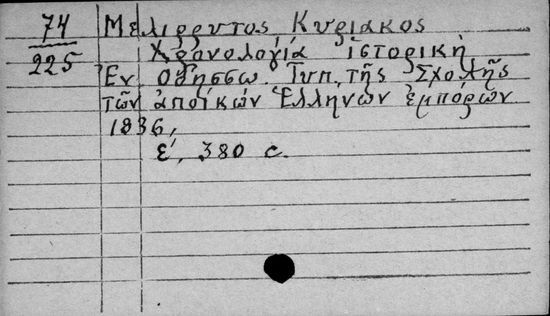 74
225
Μελιρρυτος, Κυριακος
Χρονολογία ἱστορικὴ
Ἐν Ὀδησσῳ. Τυπ. τῆς Σχολῆς
τῶν ἀποίκων Ἑλλήνων ἐμπόρων
1836,
ε΄, 380 с.